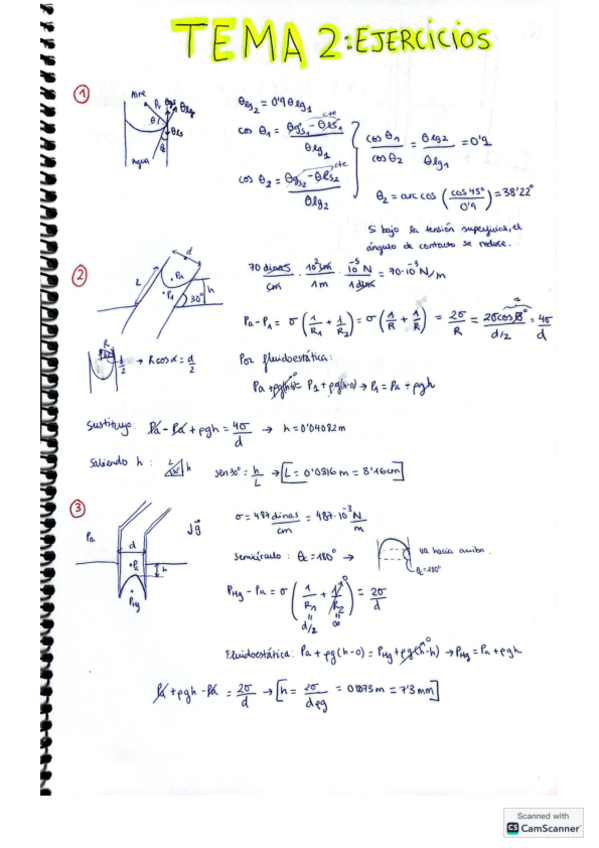 TEMA 2: EJERCICIOS
①
Aire
Agua
θlg₂ = 0'9 θlg₁
cos θ₁ = θgs₁ - θls₁ / θlg₁
cte
cos θ₂ = θgs₂ - θls₂ / θlg₂
cte
cos θ₁ / cos θ₂ = θlg₂ / θlg₁ = 0'9
θ₂ = arc cos (cos 45° / 0'9) = 38'22°
Si bajo la tensión superficial, el
ángulo de contacto se reduce.
②
L
d
Pa
P₁
h
30°
70 dinas / cm · 10² cm / 1 m · 10⁻⁵ N / 1 dina = 70·10⁻³ N/m
Pa - P₁ = σ (1/R₁ + 1/R₂) = σ (1/R + 1/R) = 2σ/R = 2σcosθ / d/2 = 4σ/d
R
d/2 → R cos α = d/2
Por fluidoestática:
Pa + ρg(h-h) = P₁ + ρg(h-0) → P₁ = Pa + ρgh
Sustituyo: Pa - Pa + ρgh = 4σ/d → h = 0'04082 m
Sabiendo h:
L
30°
h
sen 30° = h/L → [L = 0'0816 m = 8'16 cm]
③
Pa
d
h
PHg
↓g
σ = 487 dinas / cm = 487·10⁻³ N/m
Semicírculo: θc = 180° →
va hacia arriba.
θc = 180°
PHg - Pa = σ (1/R₁ + 1/R₂) = 2σ/d
d/2
∞
Fluidoestática: Pa + ρg(h-0) = PHg + ρg(h-h) → PHg = Pa + ρgh
Pa + ρgh - Pa = 2σ/d → [h = 2σ/dρg = 0'0073 m = 7'3 mm]
Scanned with
CS CamScanner